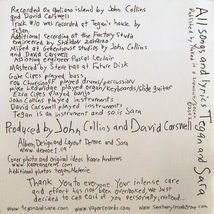 Recorded on galiano island by John Collins
and David Carswell
Track #10 was recorded at Tegan's house, by
Tegan
Additional recording at the Factory Studio
Engineered by Sheldon Zaharko
Mixed at Greenhouse studios by John Collins
and David Carswell
Assisting engineer Pascal Leclair
Mastered by Steve Hall at Future Disk
Gabe Cirs played bass
rob Chursinoff played drums/percussion
mike Ledwidge played organ/keyboards/slide guitar
Ezra Cipes played banjo
John Collins played instruments
David Carswell played instruments
Tegan is an instrument and so is Sara
Produced by John Collins and David Carswell
Album Design and Layout Torsten and Sara
Cover photo and original ideas Karen Andrews
Additional photos Tegan, Melanie
Thank you to everyone Your intense care
and effort has not been overlooked We just
decided to call each of you personally, instead...
www.teganandsara.com
www.vaporrecords.com
www.sanctuaryrecordsgroup.com
All songs and lyrics Tegan and Sara